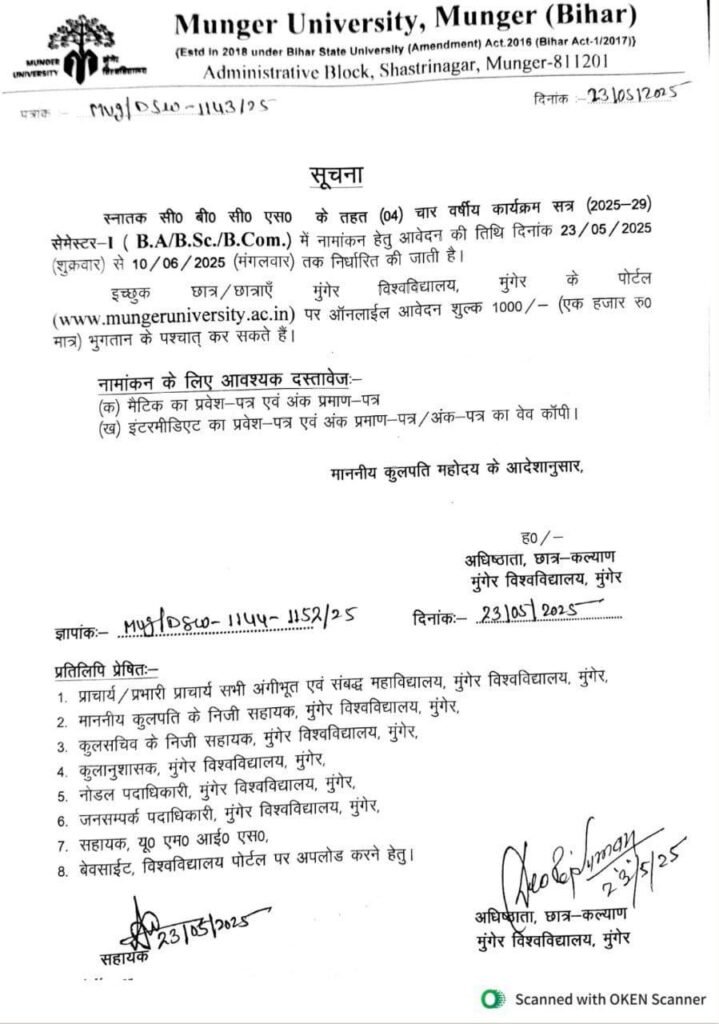 Munger University, Munger (Bihar)
{Estd in 2018 under Bihar State University (Amendment) Act.2016 (Bihar Act-1/2017)}
Administrative Block, Shastrinagar, Munger-811201
MUNGER मुंगेर
UNIVERSITY विश्वविद्यालय
पत्रांक :- Mug/DSW-1143/25
दिनांक :- 23/05/2025
सूचना
स्नातक सी0 बी0 सी0 एस0 के तहत (04) चार वर्षीय कार्यक्रम सत्र (2025-29)
सेमेस्टर-I ( B.A/B.Sc./B.Com.) में नामांकन हेतु आवेदन की तिथि दिनांक 23/05/2025
(शुक्रवार) से 10/06/2025 (मंगलवार) तक निर्धारित की जाती है।
इच्छुक छात्र/छात्राएँ मुंगेर विश्वविद्यालय, मुंगेर के पोर्टल
(www.mungeruniversity.ac.in) पर ऑनलाईल आवेदन शुल्क 1000/- (एक हजार रु0
मात्र) भुगतान के पश्चात् कर सकते हैं।
नामांकन के लिए आवश्यक दस्तावेजः-
(क) मैटिक का प्रवेश-पत्र एवं अंक प्रमाण-पत्र
(ख) इंटरमीडिएट का प्रवेश-पत्र एवं अंक प्रमाण-पत्र/अंक-पत्र का वेव कॉपी।
माननीय कुलपति महोदय के आदेशानुसार,
ह0/-
अधिष्ठाता, छात्र-कल्याण
मुंगेर विश्वविद्यालय, मुंगेर
ज्ञापांकः- Mug/DSW-1144-1152/25
दिनांकः- 23/05/2025
प्रतिलिपि प्रेषितः-
1. प्राचार्य/प्रभारी प्राचार्य सभी अंगीभूत एवं संबद्ध महाविद्यालय, मुंगेर विश्वविद्यालय, मुंगेर,
2. माननीय कुलपति के निजी सहायक, मुंगेर विश्वविद्यालय, मुंगेर,
3. कुलसचिव के निजी सहायक, मुंगेर विश्वविद्यालय, मुंगेर,
4. कुलानुशासक, मुंगेर विश्वविद्यालय, मुंगेर,
5. नोडल पदाधिकारी, मुंगेर विश्वविद्यालय, मुंगेर,
6. जनसम्पर्क पदाधिकारी, मुंगेर विश्वविद्यालय, मुंगेर,
7. सहायक, यू0 एम0 आई0 एस0,
8. बेवसाईट, विश्वविद्यालय पोर्टल पर अपलोड करने हेतु।
23/5/25
अधिष्ठाता, छात्र-कल्याण
मुंगेर विश्वविद्यालय, मुंगेर
23/05/2025
सहायक
Scanned with OKEN Scanner